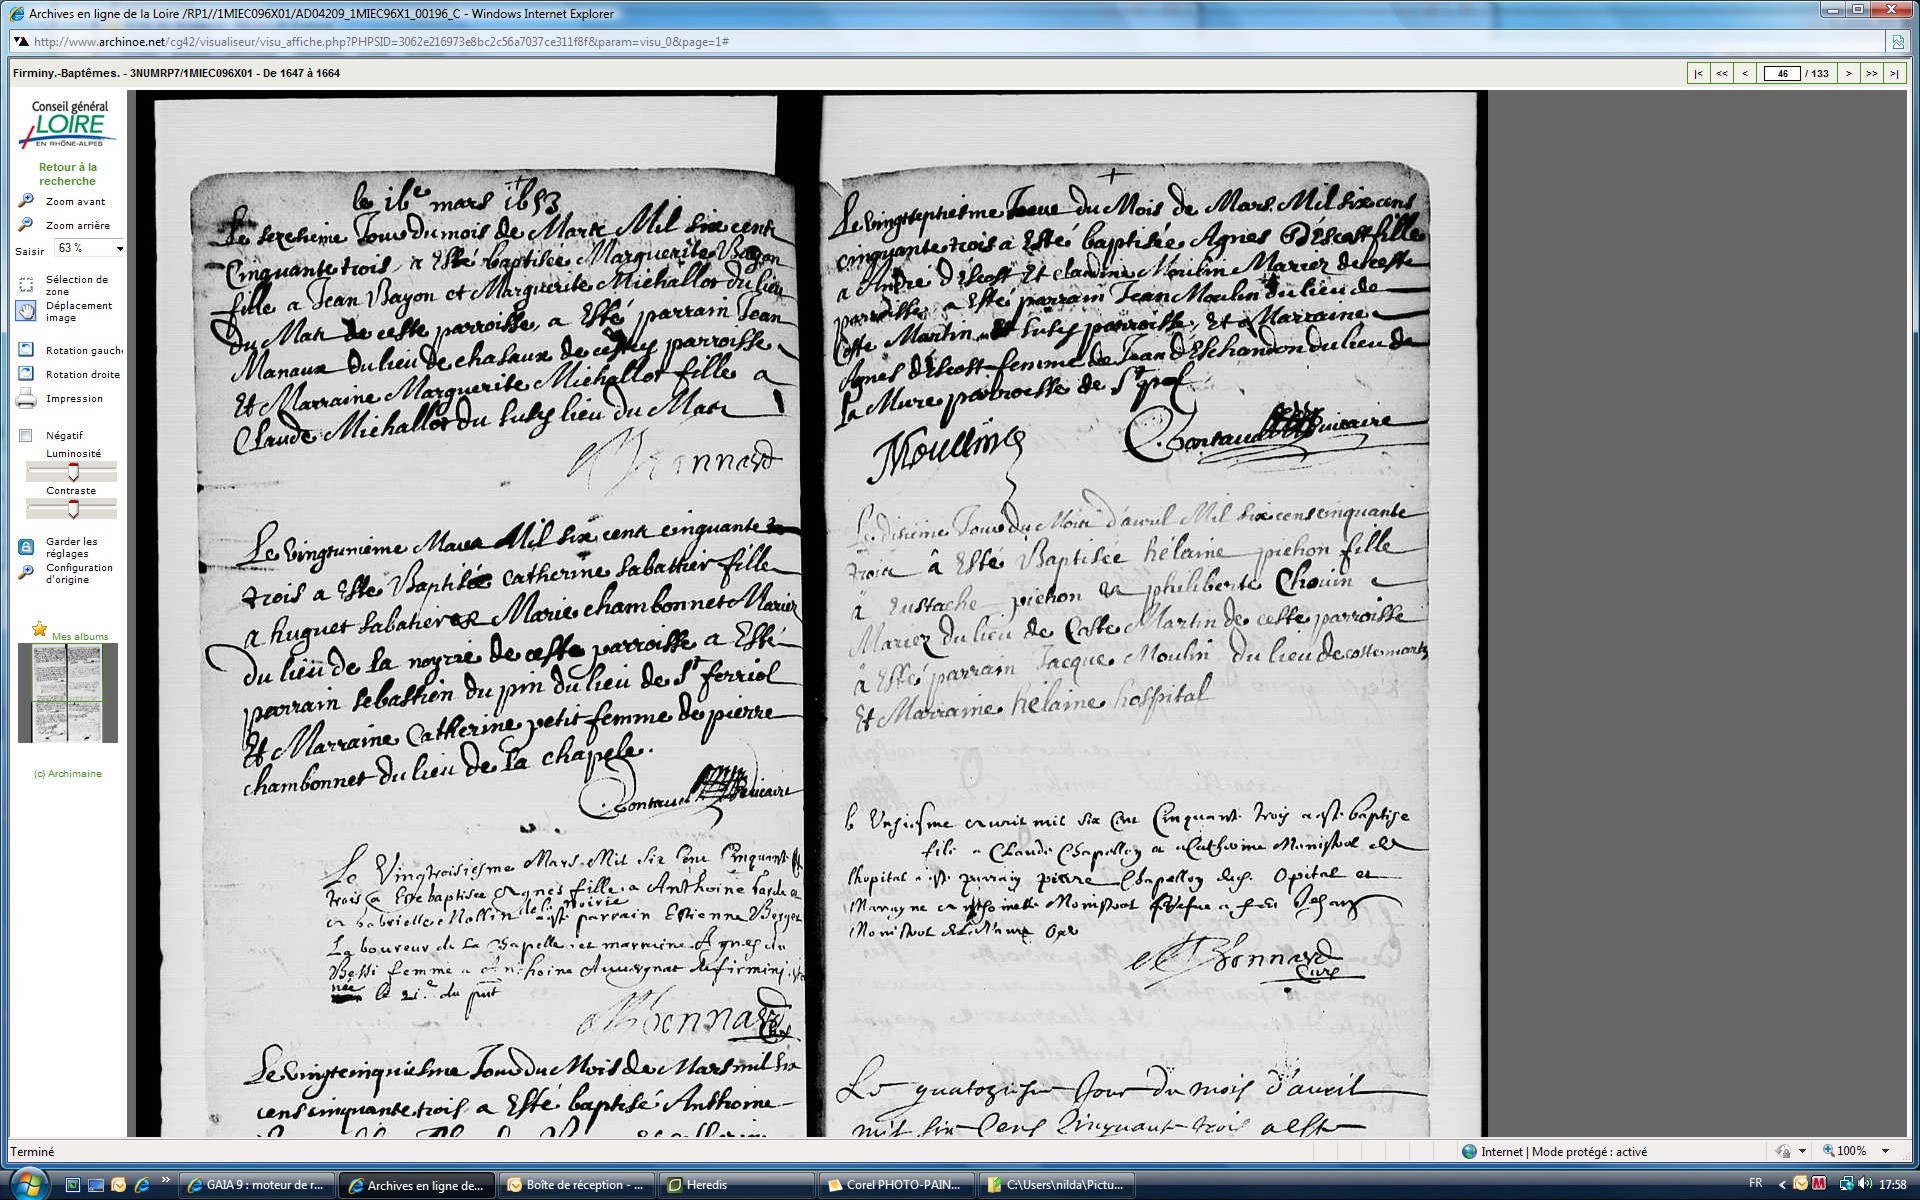 Archives en ligne de la Loire /RP1//1MIEC096X01/AD04209_1MIEC96X1_00196_C - Windows Internet Explorer
http://www.archinoe.net/cg42/visualiseur/visu_affiche.php?PHPSID=3062e216973e8bc2c56a7037ce311f8f&param=visu_0&page=1#
Firminy.-Baptêmes. - 3NUMRP7/1MIEC096X01 - De 1647 à 1664
|< << < 46 / 133 > >> >|
Conseil général
LOIRE
EN RHÔNE-ALPES
Retour à la
recherche
Zoom avant
Zoom arrière
Saisir 63 %
Sélection de
zone
Déplacement
image
Rotation gauch
Rotation droite
Impression
Négatif
Luminosité
Contraste
Garder les
réglages
Configuration
d'origine
Mes albums
(c) Archimaine
le 16e mars 1653
Le sezehieme Jour du mois de Mars Mil six cent
Cinquante trois, a Esté baptisée Marguerite Bayon
fille a Jean Bayon et Marguerite Michallot du lieu
du Mas de ceste parroisse, a Esté parrain Jean
Manaux du lieu de chasaux de parroisse
Et Marraine Marguerite Michallot fille a
Claude Michallot du susd lieu du Mas
Bonnard
Le vingtunième Mars Mil six cent cinquante
trois a Esté Baptisée Catherine sabattier fille
a huguet sabatier et Marie chambonnet Mariez
du lieu de la noyrie de ceste parroisse a Esté
parrain sebastien du pin du lieu de St ferriol
Et Marraine Catherine petit femme de pierre
chambonnet du lieu de la chapele.
vicaire
Le Vingtroisiesme Mars Mil six Cent Cinquante
trois a Esté baptisée Agnes fille a Anthoine
a Gabrielle Mollin de la noirie a esté parrain Estienne Berger
Laboureur de La Chapelle et marraine Agnes du
Bessi femme a Anthoine Auvergnat de firminy
née le 21e du pnt
Bonnard
Curé
Le vingtcinquiesme Jour du Mois de Mars mil six
cens cinquante trois, a Esté baptisé Anthoine
Le vingtseptiesme Jour du Mois de Mars. Mil six cens
cinquante trois a Esté baptisée Agnes d'Escost fille
a André d'Escost Et claudine Moulin Mariez de ceste
parroisse, a Esté parrain Jean Moulin du lieu de
Coste Martin susd parroisse, Et a Marraine
Agnes d'Escost femme de Jean d'Eschandon du lieu de
la Mure parroisse de St
Moullin
vicaire
Le disième Jour du Mois d'avril Mil six cens cinquante
trois â Esté Baptisée hélaine pichon fille
â Eustache pichon & philiberte Chovin
Mariez du lieu de Coste Martin de ceste parroisse
â Esté parrain Jacque Moulin du lieu de coste martin
Et Marraine hélaine hospital
le Unsiesme avril mil six Cent Cinquante trois a esté baptisé
fils a Claude Chapellon a Catherine Monistrol de
lhopital a esté parrain pierre Chapellon Opital et
Marrayne Anthoinette Monistrol a feu Jehan
Monistrol
Bonnard
Curé
Le quatorziesme Jour du mois d'avril
mil six Cens Cinquante trois a esté
Terminé
Internet | Mode protégé : activé
100%
GAIA 9 : moteur de r...
Archives en ligne de...
Boîte de réception - ...
Heredis
Corel PHOTO-PAIN...
C:\Users\nilda\Pictu...
FR
17:58